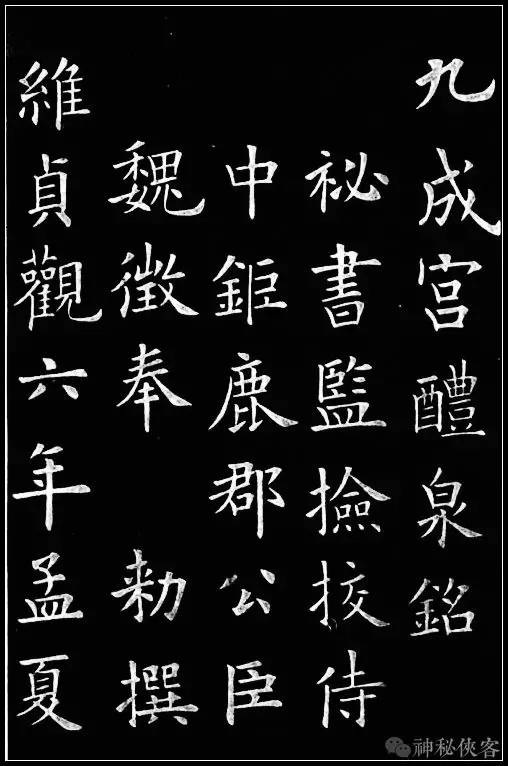 九成宫醴泉銘
祕書監撿挍侍
中鉅鹿郡公臣
魏徵奉 勑撰
維貞觀六年孟夏
神秘俠客